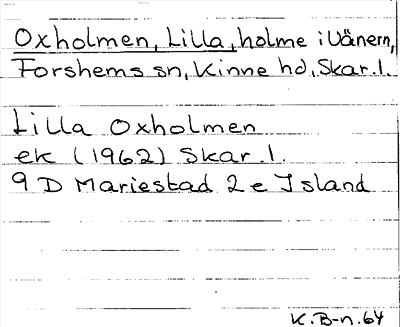 Oxholmen, Lilla, holme i Vänern,
Forshems sn, Kinne hd, Skar.l.
Lilla Oxholmen
ek (1962) Skar.l.
9 D Mariestad 2 e Island
K.B-n.64